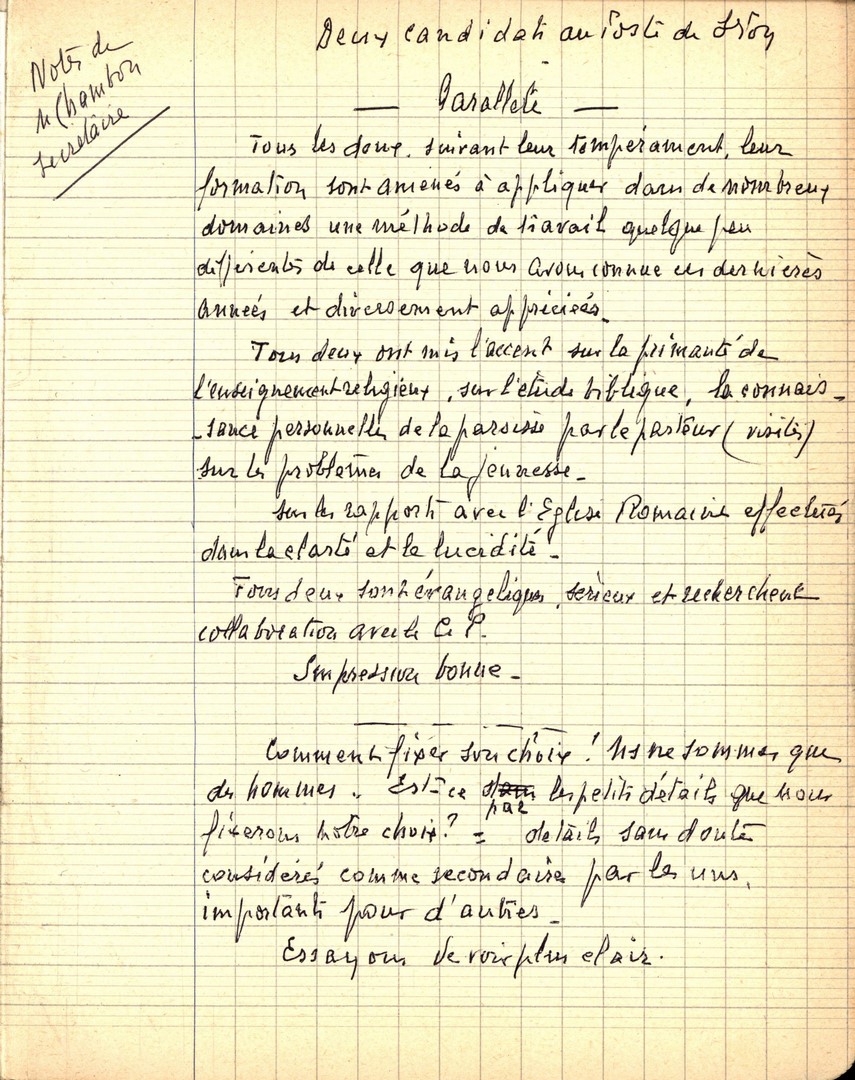 Notes de
M Chambon
secrétaire
Deux candidats au Poste de
— Parallèle —
Tous les deux, suivant leur tempérament, leur
formation sont amenés à appliquer dans de nombreux
domaines une méthode de travail quelque peu
différentes de celle que nous avons connue ces dernières
années et diversement appréciées_
Tous deux ont mis l'accent sur la primauté de
l'enseignement religieux, sur l'étude biblique, la connais_
_sance personnelle de la paroisse par le pasteur (visites)
sur les problèmes de la jeunesse_
sur les rapports avec l'Eglise Romaine effectués
dans la clarté et la lucidité_
Tous deux sont évangéliques, sérieux et recherchent
collaboration avec le C. P.
Impression bonne_
Comment fixer son choix! Ns ne sommes que
des hommes. Est-ce dans par les petits détails que nous
fixerons notre choix? = détails sans doute
considérés comme secondaires par les uns,
importants pour d'autres_
Essayons de voir plus clair.